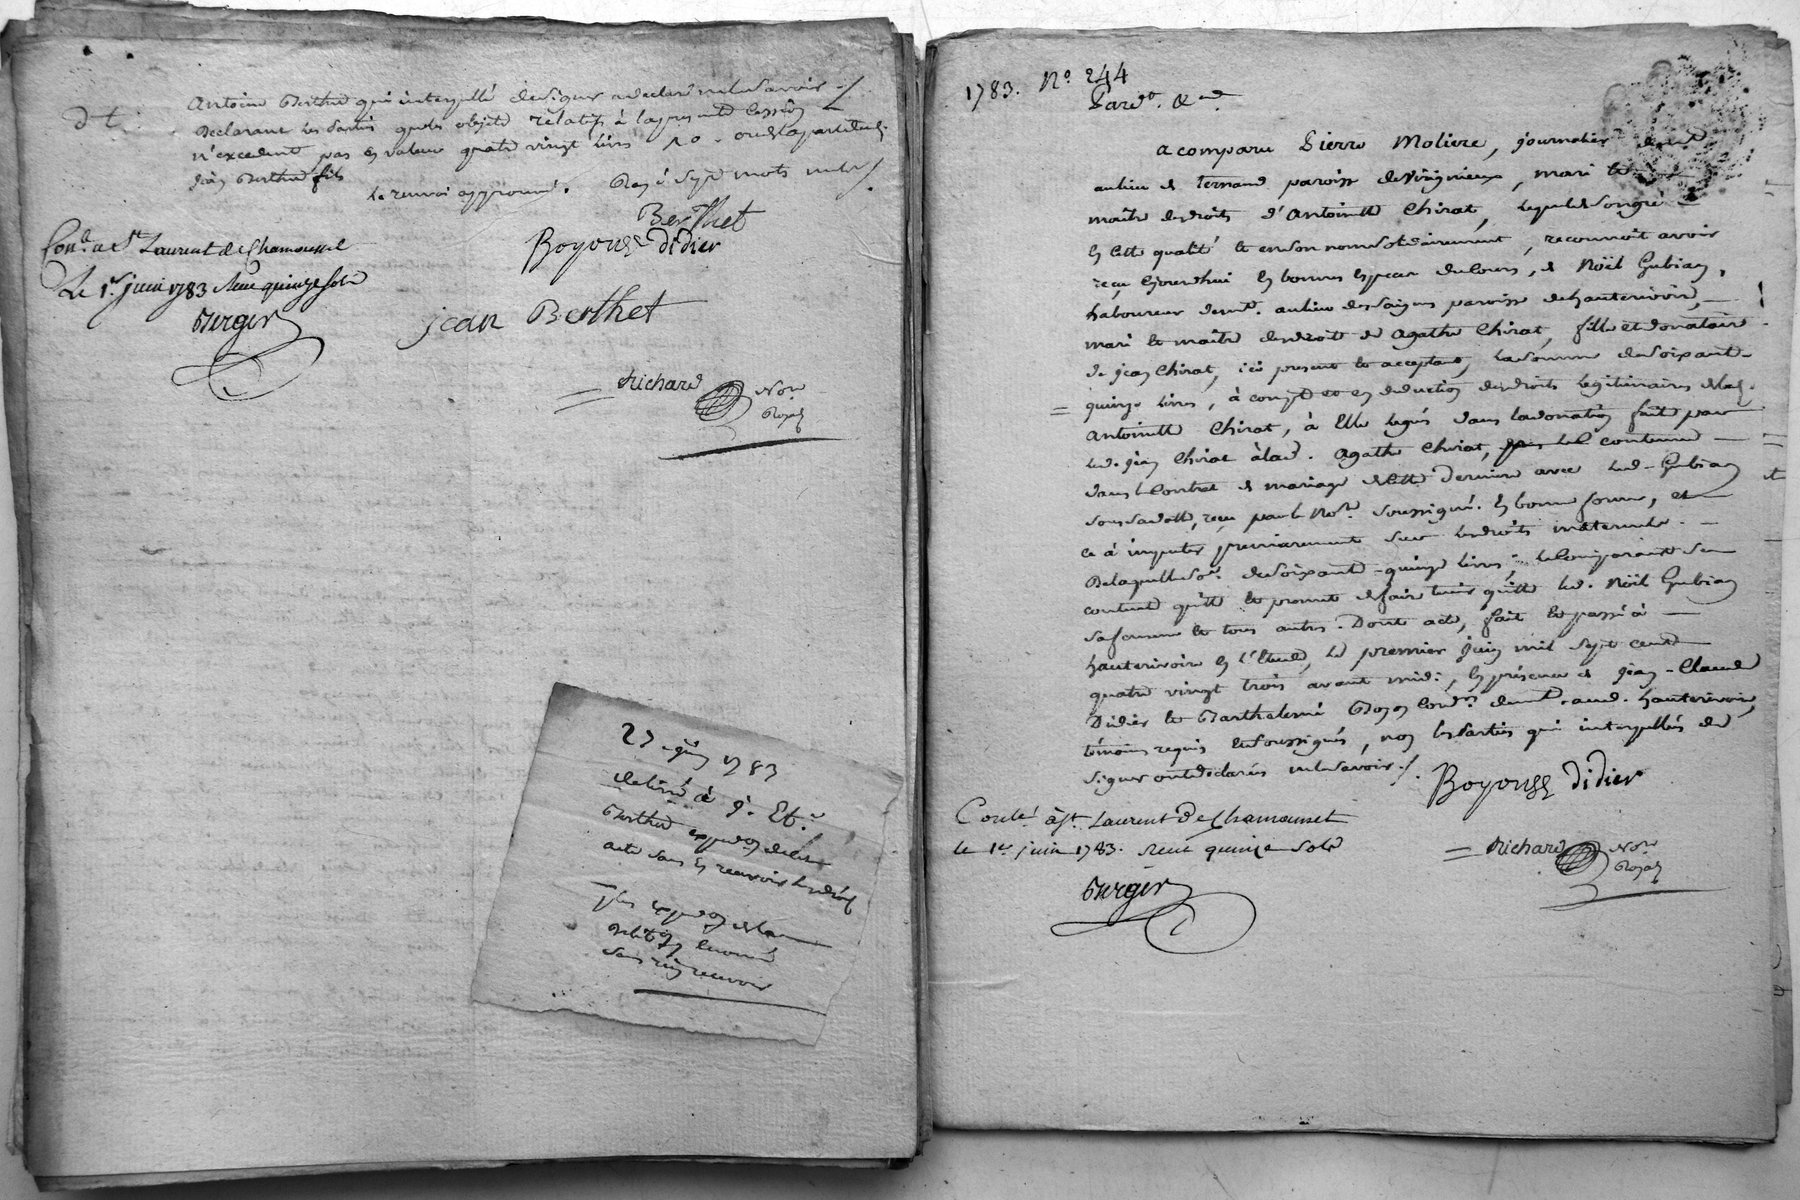 Antoine Berthet qui interpellé de signer a déclaré ne le savoir ./.
Declarant les parties que les objets relatifs à la presente cession
n'excedent pas en valeur quatre vingt livres
jean Berthet fils
le renvoi approuvé. Rayé sept mots nuls ./.
Berthet
Boyousse didier
Con.lé a St Laurent de Chamousset
Le 1er juin 1783 Receu quinze sols
Berger
jean Berthet
Richard Not.re Royal
27 juin 1783
delivré à
Berthet expedon dudit
acte sans en recevoir les droits
plus expedon de la
sans rien recevoir
1783. N.o 244
Pard.t &nd.
a comparu Pierre Moliere, journalier dem.t
au lieu de Ternand paroisse de Virignieux, mari et
maître des droits d'Antoinette Chirat, lequel de son gré
en cette qualité et en son nom solidairement, reconnoit avoir
reçu ejourdhui en bonnes especes du cours, de Noël Gubian,
laboureur dem.t au lieu des paroisse de hauterivoire,
mari et maître des droits de Agathe Chirat, fille et donataire
de jean Chirat, ici present et acceptant, la somme de soixante
quinze livres, à compte et en deduction des droits legitimaires de lad.
Antoinette Chirat, à Elle legués dans la donation faite par
led. jean Chirat à lad. Agathe Chirat, contenue
dans le Contrat de mariage de cette derniere avec led. Gubian
reçu par le No.re soussigné. En bonne forme, et
ce à imputer premierement sur les droits maternels.
De laquelle so.e de soixante-quinze livres, le Comparant se
contente quitte et promet de faire tenir quitte led. Noël Gubian
sa femme et tous autres. Dont acte, fait et passé à
hauterivoire en l'Etude, le premier juin mil sept cent
quatre vingt trois avant midi, en présence de jean-Claude
Didier et Barthelemi dem.t aud. hauterivoire,
témoins requis et soussignés, non les parties qui interpellées de
signer ont déclarés ne le savoir ./.
Boyousse didier
Conlé à St Laurent de Chamousset
le 1er juin 1783. Receu quinze sols
Berger
Richard Not.re Royal